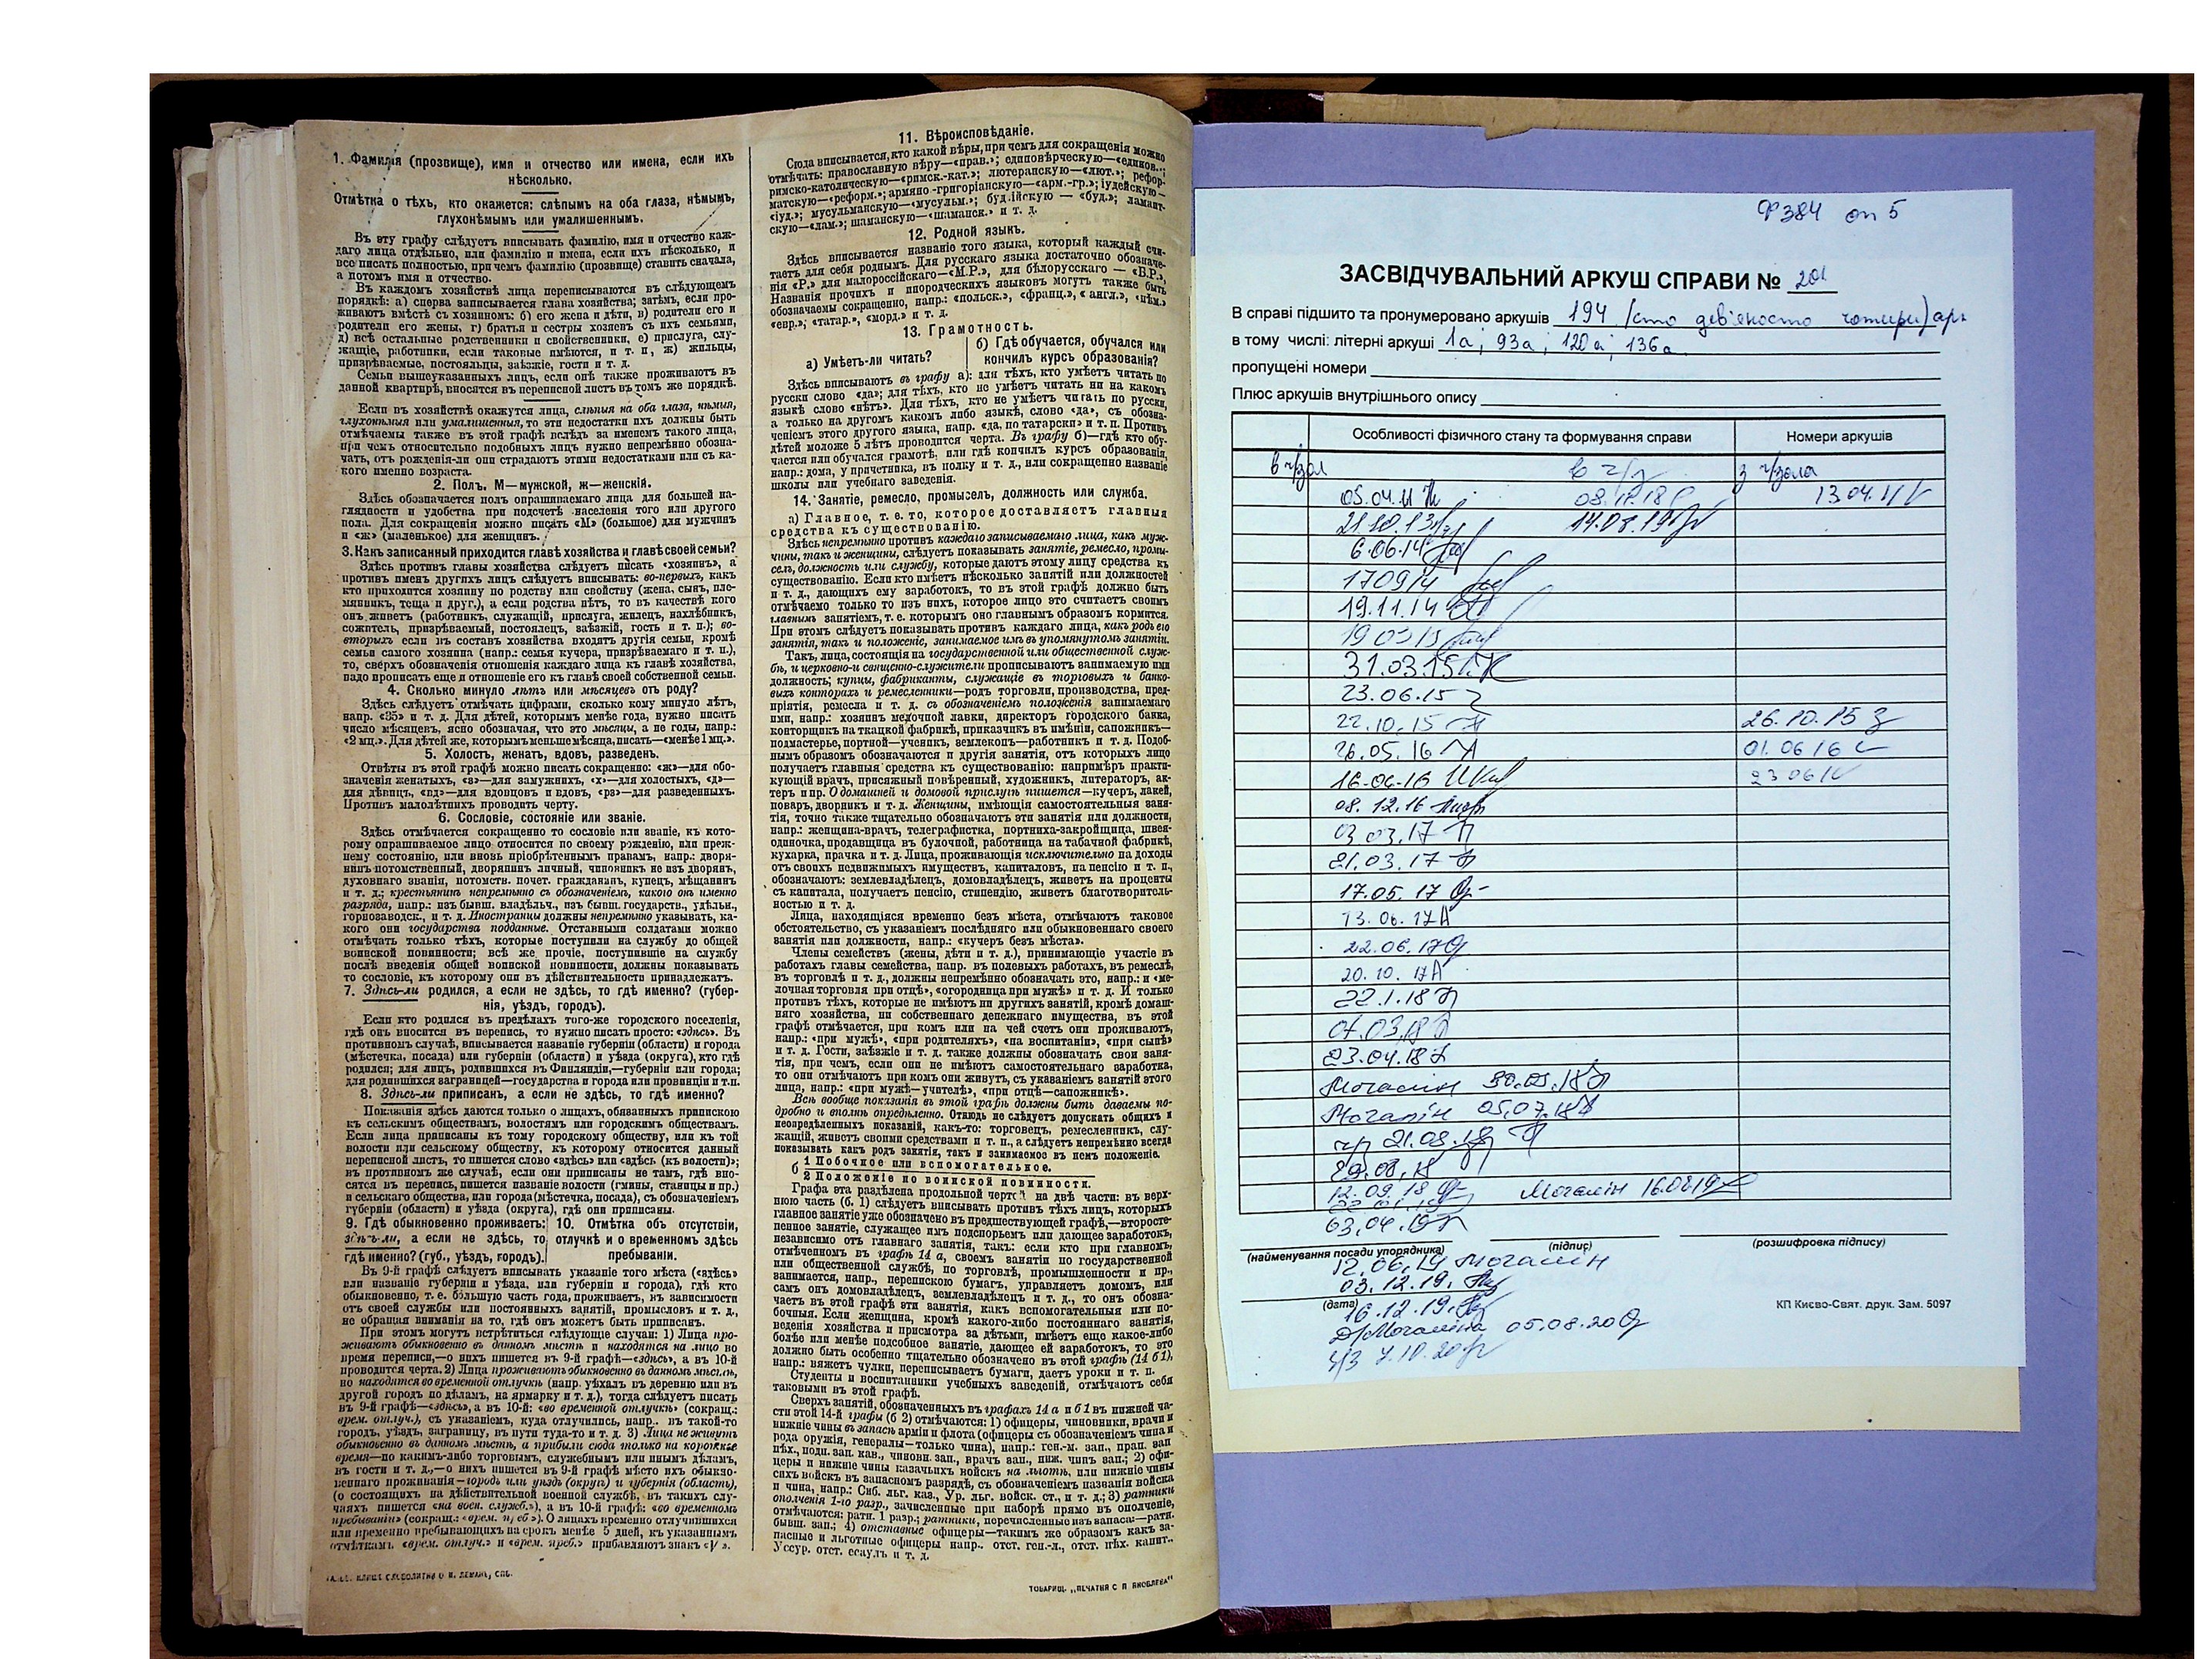 1. Фамилія (прозвище), имя и отчество или имена, если ихъ
нѣсколько.
Отмѣтка о тѣхъ, кто окажется: слѣпымъ на оба глаза, нѣмымъ,
глухонѣмымъ или умалишеннымъ.
Въ эту графу слѣдуетъ вписывать фамилію, имя и отчество каж-
даго лица отдѣльно, или фамилію и имена, если ихъ нѣсколько, и
все писать полностью, при чемъ фамилію (прозвище) ставить сначала,
а потомъ имя и отчество.
Въ каждомъ хозяйствѣ лица переписываются въ слѣдующемъ
порядкѣ: а) сперва записывается глава хозяйства; затѣмъ, если про-
живаютъ вмѣстѣ съ хозяиномъ: б) его жена и дѣти, в) родители его и
родители его жены, г) братья и сестры хозяевъ съ ихъ семьями,
д) всѣ остальные родственники и свойственники, е) прислуга, слу-
жащіе, работники, если таковые имѣются, и т. п., ж) жильцы,
призрѣваемые, постояльцы, заѣзжіе, гости и т. д.
Семьи вышеуказанныхъ лицъ, если онѣ также проживаютъ въ
данной квартирѣ, вносятся въ переписной листъ въ томъ же порядкѣ.
Если въ хозяйствѣ окажутся лица, слѣпыя на оба глаза, нѣмыя,
глухонѣмыя или умалишенныя, то эти недостатки ихъ должны быть
отмѣчаемы также въ этой графѣ вслѣдъ за именемъ такого лица,
при чемъ относительно подобныхъ лицъ нужно непремѣнно обозна-
чать, отъ рожденія-ли они страдаютъ этими недостатками или съ ка-
кого именно возраста.
2. Полъ. М—мужской, ж—женскій.
Здѣсь обозначается полъ опрашиваемаго лица для большей на-
глядности и удобства при подсчетѣ населенія того или другого
пола. Для сокращенія можно писать «М» (большое) для мужчинъ
и «ж» (маленькое) для женщинъ.
3. Какъ записанный приходится главѣ хозяйства и главѣ своей семьи?
Здѣсь противъ главы хозяйства слѣдуетъ писать «хозяинъ», а
противъ именъ другихъ лицъ слѣдуетъ вписывать: во-первыхъ, какъ
кто приходится хозяину по родству или свойству (жена, сынъ, пле-
мянникъ, теща и друг.), а если родства нѣтъ, то въ качествѣ кого
онъ живетъ (работникъ, служащій, прислуга, жилецъ, нахлѣбникъ,
сожитель, призрѣваемый, постоялецъ, заѣзжій, гость и т. п.); во-
вторыхъ если въ составъ хозяйства входятъ другія семьи, кромѣ
семьи самого хозяина (напр.: семья кучера, призрѣваемаго и т. п.),
то, сверхъ обозначенія отношенія каждаго лица къ главѣ хозяйства,
надо прописать еще и отношеніе его къ главѣ своей собственной семьи.
4. Сколько минуло лѣтъ или мѣсяцевъ отъ роду?
Здѣсь слѣдуетъ отмѣчать цифрами, сколько кому минуло лѣтъ,
напр. «35» и т. д. Для дѣтей, которымъ менѣе года, нужно писать
число мѣсяцевъ, ясно обозначая, что это мѣсяцы, а не годы, напр.:
«2 мц.». Для дѣтей же, которымъ меньше мѣсяца, писать—«менѣе 1 мц.».
5. Холостъ, женатъ, вдовъ, разведенъ.
Отвѣты въ этой графѣ можно писать сокращенно: «ж»—для обо-
значенія женатыхъ, «з»—для замужнихъ, «х»—для холостыхъ, «д»—
для дѣвицъ, «вд»—для вдовцовъ и вдовъ, «рз»—для разведенныхъ.
Противъ малолѣтнихъ проводить черту.
6. Сословіе, состояніе или званіе.
Здѣсь отмѣчается сокращенно то сословіе или званіе, къ кото-
рому опрашиваемое лицо относится по своему рожденію, или преж-
нему состоянію, или вновь пріобрѣтеннымъ правамъ, напр.: дворя-
нинъ потомственный, дворянинъ личный, чиновникъ не изъ дворянъ,
духовнаго званія, потомств. почет. гражданинъ, купецъ, мѣщанинъ
и т. д.; крестьянинъ непремѣнно съ обозначеніемъ, какого онъ именно
разряда, напр.: изъ бывш. владѣльч., изъ бывш. государств., удѣльн.,
горнозаводск., и т. д. Иностранцы должны непремѣнно указывать, ка-
кого они государства подданные. Отставными солдатами можно
отмѣчать только тѣхъ, которые поступили на службу до общей
воинской повинности; всѣ же прочіе, поступившіе на службу
послѣ введенія общей воинской повинности, должны показывать
то сословіе, къ которому они въ дѣйствительности принадлежатъ.
7. Здѣсь-ли родился, а если не здѣсь, то гдѣ именно? (губер-
нія, уѣздъ, городъ).
Если кто родился въ предѣлахъ того-же городского поселенія,
гдѣ онъ вносится въ перепись, то нужно писать просто: «здѣсь». Въ
противномъ случаѣ, вписывается названіе губерніи (области) и города
(мѣстечка, посада) или губерніи (области) и уѣзда (округа), кто гдѣ
родился; для лицъ, родившихся въ Финляндіи,—губерніи или города;
для родившихся заграницей—государства и города или провинціи и т.п.
8. Здѣсь-ли приписанъ, а если не здѣсь, то гдѣ именно?
Показанія здѣсь даются только о лицахъ, обязанныхъ припискою
къ сельскимъ обществамъ, волостямъ или городскимъ обществамъ.
Если лица приписаны къ тому городскому обществу, или къ той
волости или сельскому обществу, къ которому относится данный
переписной листъ, то пишется слово «здѣсь» или «здѣсь (къ волости)»;
въ противномъ же случаѣ, если они приписаны не тамъ, гдѣ вно-
сятся въ перепись, пишется названіе волости (гмины, станицы и пр.)
и сельскаго общества, или города (мѣстечка, посада), съ обозначеніемъ
губерніи (области) и уѣзда (округа), гдѣ они приписаны.
9. Гдѣ обыкновенно проживаетъ:
здѣсь-ли, а если не здѣсь, то
гдѣ именно? (губ., уѣздъ, городъ).
10. Отмѣтка объ отсутствіи,
отлучкѣ и о временномъ здѣсь
пребываніи.
Въ 9-й графѣ слѣдуетъ вписывать указаніе того мѣста («здѣсь»
или названіе губерніи и уѣзда, или губерніи и города), гдѣ кто
обыкновенно, т. е. большую часть года, проживаетъ, въ зависимости
отъ своей службы или постоянныхъ занятій, промысловъ и т. д.,
не обращая вниманія на то, гдѣ онъ можетъ быть приписанъ.
При этомъ могутъ встрѣтиться слѣдующіе случаи: 1) Лица про-
живаютъ обыкновенно въ данномъ мѣстѣ и находятся на лицо во
время переписи,—о нихъ пишется въ 9-й графѣ—«здѣсь», а въ 10-й
проводится черта. 2) Лица проживаютъ обыкновенно въ данномъ мѣстѣ,
но находятся во временной отлучкѣ (напр. уѣхалъ въ деревню или въ
другой городъ по дѣламъ, на ярмарку и т. д.), тогда слѣдуетъ писать
въ 9-й графѣ—«здѣсь», а въ 10-й: «во временной отлучкѣ» (сокращ.:
врем. отлуч.), съ указаніемъ, куда отлучились, напр., въ такой-то
городъ, уѣздъ, заграницу, въ пути туда-то и т. д. 3) Лица не живутъ
обыкновенно въ данномъ мѣстѣ, а прибыли сюда только на короткое
время—по какимъ-либо торговымъ, служебнымъ или инымъ дѣламъ,
въ гости и т. д.,—о нихъ пишется въ 9-й графѣ мѣсто ихъ обыкно-
веннаго проживанія—городъ или уѣздъ (округъ) и губернія (область),
(о состоящихъ на дѣйствительной военной службѣ, въ такихъ слу-
чаяхъ пишется «на воен. служб.»), а въ 10-й графѣ: «во временномъ
пребываніи» (сокращ.: «врем. преб»). О лицахъ временно отлучившихся
или временно пребывающихъ на срокъ менѣе 5 дней, къ указаннымъ
отмѣткамъ «врем. отлуч.» и «врем. преб.» прибавляютъ знакъ «V».
11. Вѣроисповѣданіе.
Сюда вписывается, кто какой вѣры, при чемъ для сокращенія можно
отмѣчать: православную вѣру—«прав.»; единовѣрческую—«единов.»;
римско-католическую—«римск.-кат.»; лютеранскую—«лют.»; рефор-
матскую—«реформ.»; армяно-григоріанскую—«арм.-гр.»; іудейскую—
«іуд.»; мусульманскую—«мусульм.»; буддійскую — «буд.»; ламаит-
скую—«лам.»; шаманскую—«шаманск.» и т. д.
12. Родной языкъ.
Здѣсь вписывается названіе того языка, который каждый счи-
таетъ для себя роднымъ. Для русскаго языка достаточно обозначе-
нія «Р.» для малороссійскаго—«М.Р.», для бѣлорусскаго — «Б.Р.»,
Названія прочихъ и инородческихъ языковъ могутъ также быть
обозначаемы сокращенно, напр.: «польск.», «франц.», «англ.», «нѣм.»
«евр.»; «татар.», «морд.» и т. д.
13. Грамотность.
а) Умѣетъ-ли читать?
б) Гдѣ обучается, обучался или
кончилъ курсъ образованія?
Здѣсь вписываютъ въ графу а): для тѣхъ, кто умѣетъ читать по
русски слово «да»; для тѣхъ, кто не умѣетъ читать ни на какомъ
языкѣ слово «нѣтъ». Для тѣхъ, кто не умѣетъ читать по русски,
а только на другомъ какомъ либо языкѣ, слово «да», съ обозна-
ченіемъ этого другого языка, напр. «да, по татарски» и т. п. Противъ
дѣтей моложе 5 лѣтъ проводится черта. Въ графу б)—гдѣ кто обу-
чается или обучался грамотѣ, или гдѣ кончилъ курсъ образованія,
напр.: дома, у причетника, въ полку и т. д., или сокращенно названіе
школы или учебнаго заведенія.
14. Занятіе, ремесло, промыселъ, должность или служба.
а) Главное, т. е. то, которое доставляетъ главныя
средства къ существованію.
Здѣсь непремѣнно противъ каждаго записываемаго лица, какъ муж-
чины, такъ и женщины, слѣдуетъ показывать занятіе, ремесло, промы-
селъ, должность или службу, которые даютъ этому лицу средства къ
существованію. Если кто имѣетъ нѣсколько занятій или должностей
и т. д., дающихъ ему заработокъ, то въ этой графѣ должно быть
отмѣчаемо только то изъ нихъ, которое лицо это считаетъ своимъ
главнымъ занятіемъ, т. е. которымъ оно главнымъ образомъ кормится.
При этомъ слѣдуетъ показывать противъ каждаго лица, какъ родъ его
занятія, такъ и положеніе, занимаемое имъ въ упомянутомъ занятіи.
Такъ, лица, состоящія на государственной или общественной служ-
бѣ, и церковно-и священно-служители прописываютъ занимаемую ими
должность; купцы, фабриканты, служащіе въ торговыхъ и банко-
выхъ конторахъ и ремесленники—родъ торговли, производства, пред-
пріятія, ремесла и т. д. съ обозначеніемъ положенія занимаемаго
ими, напр.: хозяинъ мелочной лавки, директоръ городского банка,
конторщикъ на ткацкой фабрикѣ, приказчикъ въ имѣніи, сапожникъ—
подмастерье, портной—ученикъ, землекопъ—работникъ и т. д. Подоб-
нымъ образомъ обозначаются и другія занятія, отъ которыхъ лицо
получаетъ главныя средства къ существованію: напримѣръ практи-
кующій врачъ, присяжный повѣренный, художникъ, литераторъ, ак-
теръ и пр. О домашней и домовой прислугѣ пишется—кучеръ, лакей,
поваръ, дворникъ и т. д. Женщины, имѣющія самостоятельныя заня-
тія, точно также тщательно обозначаютъ эти занятія или должности,
напр.: женщина-врачъ, телеграфистка, портниха-закройщица, швея-
одиночка, продавщица въ булочной, работница на табачной фабрикѣ,
кухарка, прачка и т. д. Лица, проживающія исключительно на доходы
отъ своихъ недвижимыхъ имуществъ, капиталовъ, на пенсію и т. п.,
обозначаютъ: землевладѣлецъ, домовладѣлецъ, живетъ на проценты
съ капитала, получаетъ пенсію, стипендію, живетъ благотворитель-
ностью и т. д.
Лица, находящіяся временно безъ мѣста, отмѣчаютъ таковое
обстоятельство, съ указаніемъ послѣдняго или обыкновеннаго своего
занятія или должности, напр.: «кучеръ безъ мѣста».
Члены семействъ (жены, дѣти и т. д.), принимающіе участіе въ
работахъ главы семейства, напр. въ полевыхъ работахъ, въ ремеслѣ,
въ торговлѣ и т. д., должны непремѣнно обозначать это, напр.: и «ме-
лочная торговля при отцѣ», «огородница при мужѣ» и т. д. И только
противъ тѣхъ, которые не имѣютъ ни другихъ занятій, кромѣ домаш-
няго хозяйства, ни собственнаго денежнаго имущества, въ этой
графѣ отмѣчается, при комъ или на чей счетъ они проживаютъ,
напр.: «при мужѣ», «при родителяхъ», «на воспитаніи», «при сынѣ»
и т. д. Гости, заѣзжіе и т. д. также должны обозначать свои заня-
тія, при чемъ, если они не имѣютъ самостоятельнаго заработка,
то они отмѣчаютъ при комъ они живутъ, съ указаніемъ занятій этого
лица, напр.: «при мужѣ—учителѣ», «при отцѣ—сапожникѣ».
Всѣ вообще показанія въ этой графѣ должны быть даваемы по-
дробно и вполнѣ опредѣленно. Отнюдь не слѣдуетъ допускать общихъ и
неопредѣленныхъ показаній, какъ-то: торговецъ, ремесленникъ, слу-
жащій, живетъ своими средствами и т. п., а слѣдуетъ непремѣнно всегда
показывать какъ родъ занятія, такъ и занимаемое въ немъ положеніе.
б 1 Побочное или вспомогательное.
2 Положеніе по воинской повинности.
Графа эта раздѣлена продольной чертой на двѣ части: въ верх-
нюю часть (б. 1) слѣдуетъ вписывать противъ тѣхъ лицъ, которыхъ
главное занятіе уже обозначено въ предшествующей графѣ,—второсте-
пенное занятіе, служащее имъ подспорьемъ или дающее заработокъ,
независимо отъ главнаго занятія, такъ: если кто при главномъ,
отмѣченномъ въ графѣ 14 а, своемъ занятіи по государственной
или общественной службѣ, по торговлѣ, промышленности и пр.,
занимается, напр., перепискою бумагъ, управляетъ домомъ, или
самъ онъ домовладѣлецъ, землевладѣлецъ и т. д., то онъ обозна-
чаетъ въ этой графѣ эти занятія, какъ вспомогательныя или по-
бочныя. Если женщина, кромѣ какого-либо постояннаго занятія,
веденія хозяйства и присмотра за дѣтьми, имѣетъ еще какое-либо
болѣе или менѣе подсобное занятіе, дающее ей заработокъ, то это
должно быть особенно тщательно обозначено въ этой графѣ (14 б 1),
напр.: вяжетъ чулки, переписываетъ бумаги, даетъ уроки и т. п.
Студенты и воспитанники учебныхъ заведеній, отмѣчаютъ себя
таковыми въ этой графѣ.
Сверхъ занятій, обозначенныхъ въ графахъ 14 а и б 1 въ нижней ча-
сти этой 14-й графы (б 2) отмѣчаются: 1) офицеры, чиновники, врачи и
нижніе чины въ запасѣ арміи и флота (офицеры съ обозначеніемъ чина и
рода оружія, генералы—только чина), напр.: ген.-м. зап., прап. зап
пѣх., подп. зап. кав., чиновн. зап., врачъ зап., ниж. чинъ зап.; 2) офи-
церы и нижніе чины казачьихъ войскъ на льготѣ, или нижніе чины
сихъ войскъ въ запасномъ разрядѣ, съ обозначеніемъ названія войска
и чина, напр.: Сиб. льг. каз., Ур. льг. войск. ст., и т. д.; 3) ратники
ополченія 1-го разр., зачисленные при наборѣ прямо въ ополченіе,
отмѣчаются: ратн. 1 разр.; ратники, перечисленные изъ запаса:—ратн.
бывш. зап.; 4) отставные офицеры—такимъ же образомъ какъ за-
пасные и льготные офицеры напр., отст. ген.-л., отст. пѣх. капит.,
Уссур. отст. есаулъ и т. д.
ТОВАРИЩ. „ПЕЧАТНЯ С. П. ЯКОВЛЕВА"
Ф 384 оп 5
ЗАСВІДЧУВАЛЬНИЙ АРКУШ СПРАВИ № 201
В справі підшито та пронумеровано аркушів 194 /сто дев'яносто чотири/ арк
в тому числі: літерні аркуші 1а; 93а; 120а; 136а
пропущені номери
Плюс аркушів внутрішнього опису
Особливості фізичного стану та формування справи Номери аркушів
в ч/зал в ч/з з ч/зала
05.04.11 08.11.18 13.04.11
21.10.13 14.08.19
6.06.14
170914
19.11.14
19 03 15
31.03.15
23.06.15
22.10.15 26.10.15
26.05.16 01.06 16
16.06.16 23 06
08.12.16
03 03.17
21.03.17
17.05.17
13.06.17
22.06.17
20.10.17
22.1.18
07.03.18
23.04.18
Могалін 30.05.18
Могалін 05.07.18
ч/з 21.08.18
29.08.18
12.09.18 Могалін 16.0219
03.04.19
(найменування посади упорядника) (підпис) (розшифровка підпису)
12.06.19 Могалін
03.12.19.
(дата)
16.12.19.
КП Києво-Свят. друк. Зам. 5097
Д/Могаліна 05.08.20
ч/з 7.10.20